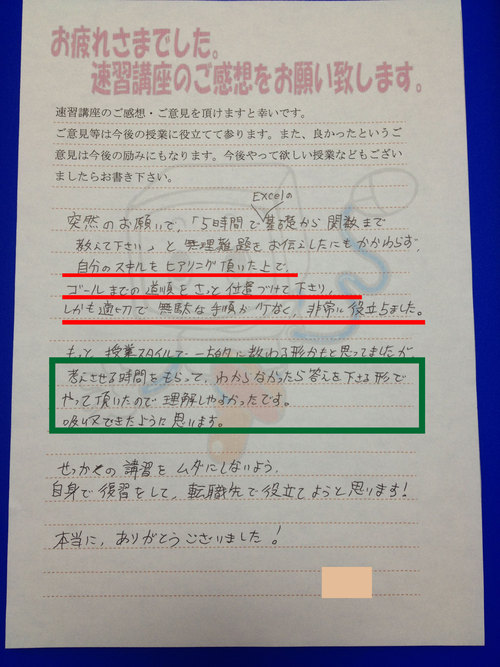 お疲れさまでした。
速習講座のご感想をお願い致します。
速習講座のご感想・ご意見を頂けますと幸いです。
ご意見等は今後の授業に役立てて参ります。また、良かったというご
意見は今後の励みにもなります。今後やって欲しい授業などもござい
ましたらお書き下さい。
Excelの
突然のお願いで、「5時間で基礎から関数まで
教えて下さい」と無理難題をお伝えしたにもかかわらず、
自分のスキルもヒアリング頂いた上で、
ゴールまでの道順をさっと位置づけて下さり、
しかも適切で無駄な手順が1つもなく、非常に役立ちました。
もっと、授業スタイルで一方的に教わる形かなと思ってましたが
考えさせる時間をもらって、わからなかったら答えを下さる形で
やって頂いたので理解しやすかったです。
吸収できたように思います。
せっかくの講習をムダにしないよう、
自身で復習をして、転職先で役立てようと思います!
本当に、ありがとうございました!